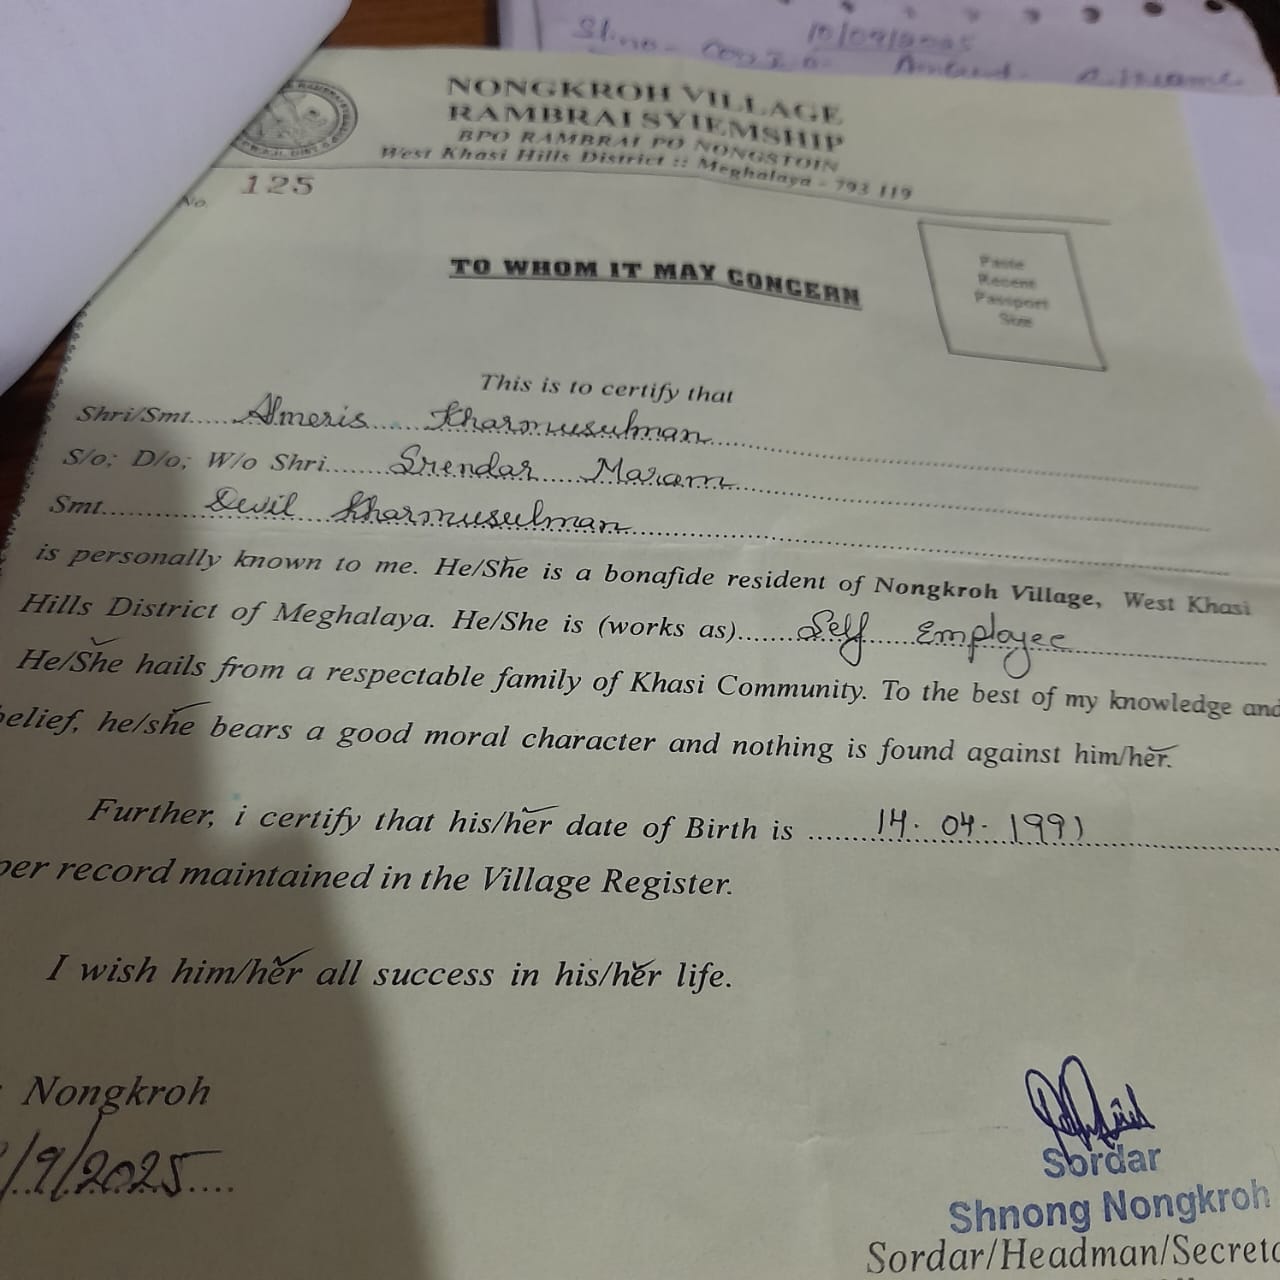 Sl.no- 10/09/2025
NONGKROH VILLAGE
RAMBRAI SYIEMSHIP
BPO RAMBRAI PO NONGSTOIN
West Khasi Hills District :: Meghalaya - 793 119
No. 125
TO WHOM IT MAY CONCERN
Paste
Recent
Passport
Size
This is to certify that
Shri/Smt..... Almeris Kharmusulman
S/o; D/o; W/o Shri...... Srendar Maram
Smt.......... Devil Kharmusulman
is personally known to me. He/She is a bonafide resident of Nongkroh Village, West Khasi
Hills District of Meghalaya. He/She is (works as)...... Self Employee
He/She hails from a respectable family of Khasi Community. To the best of my knowledge and
belief, he/she bears a good moral character and nothing is found against him/her.
Further, i certify that his/her date of Birth is ...... 14. 04. 1991
per record maintained in the Village Register.
I wish him/her all success in his/her life.
Nongkroh
/9/2025
Sordar
Shnong Nongkroh
Sordar/Headman/Secreta